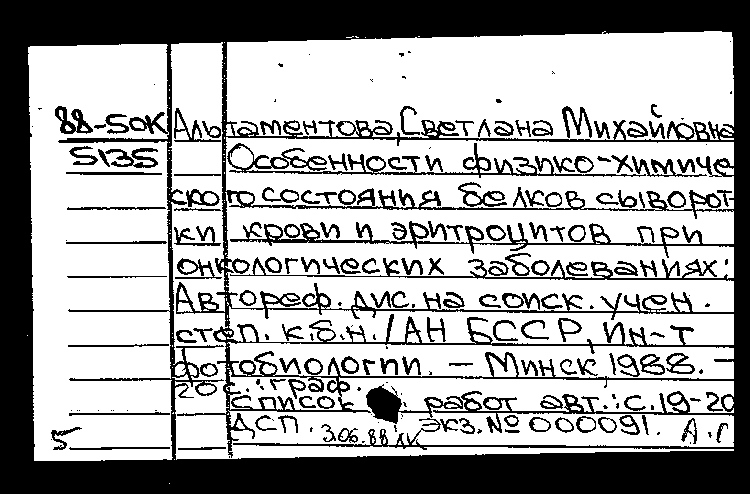 88-50К Альтаментова, Светлана Михайловна
5135 Особенности физико-химиче
ского состояния белков сыворот-
ки крови и эритроцитов при
онкологических заболеваниях:
Автореф. дис. на соиск. учен.
степ. к.б.н. / АН БССР, Ин-т
фотобиологии. — Минск, 1988. —
20 с.: граф.
Список работ авт.: с. 19-20
ДСП. экз. № 000091.
3.06.88 ЛК А.Г
5